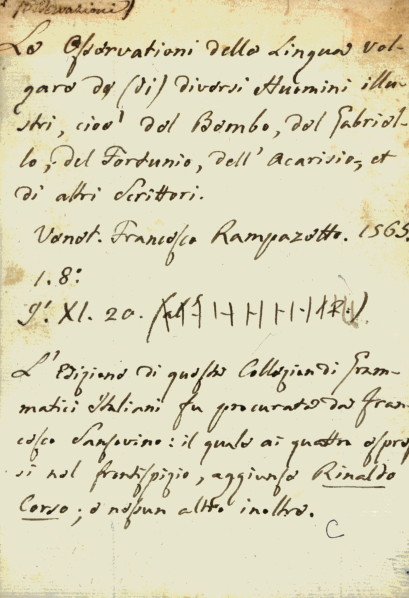 Osservazioni
Le Osservationi della Lingua vol-
gare de (di) diversi Huomini illu-
stri, cioè del Bembo, del Gabriel-
lo, del Fortunio, dell' Acarisio, et
di altri Scrittori.
Venet. Francesco Rampazetto. 1565.
1. 8°
9. XI. 20.
L'Edizione di questa Collezion di Gram-
matici Italiani fu procurata da Fran-
cesco Sansovino: il quale ai quattro espres-
si nel frontispizio, aggiunse Rinaldo
Corso; e nessun altro inoltre.
C